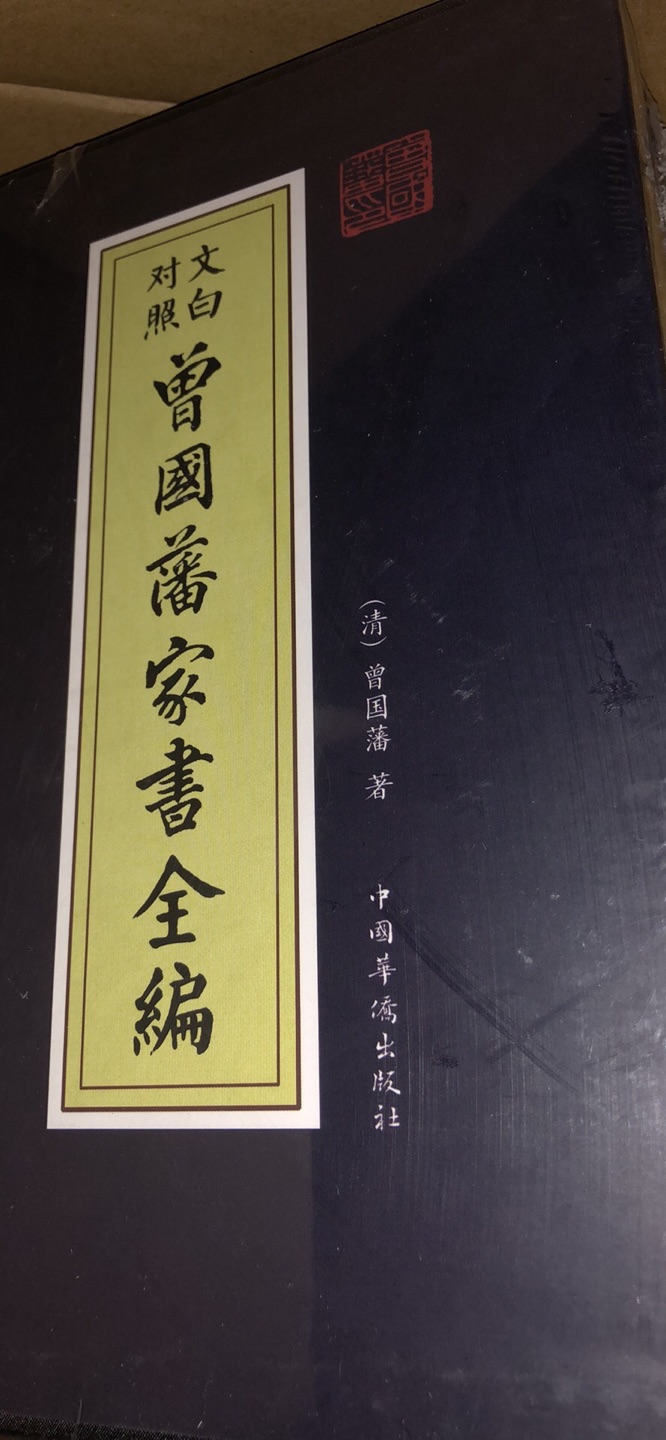 文白
对照
曾國藩家書全編
(清)曾国藩 著
中國華僑出版社